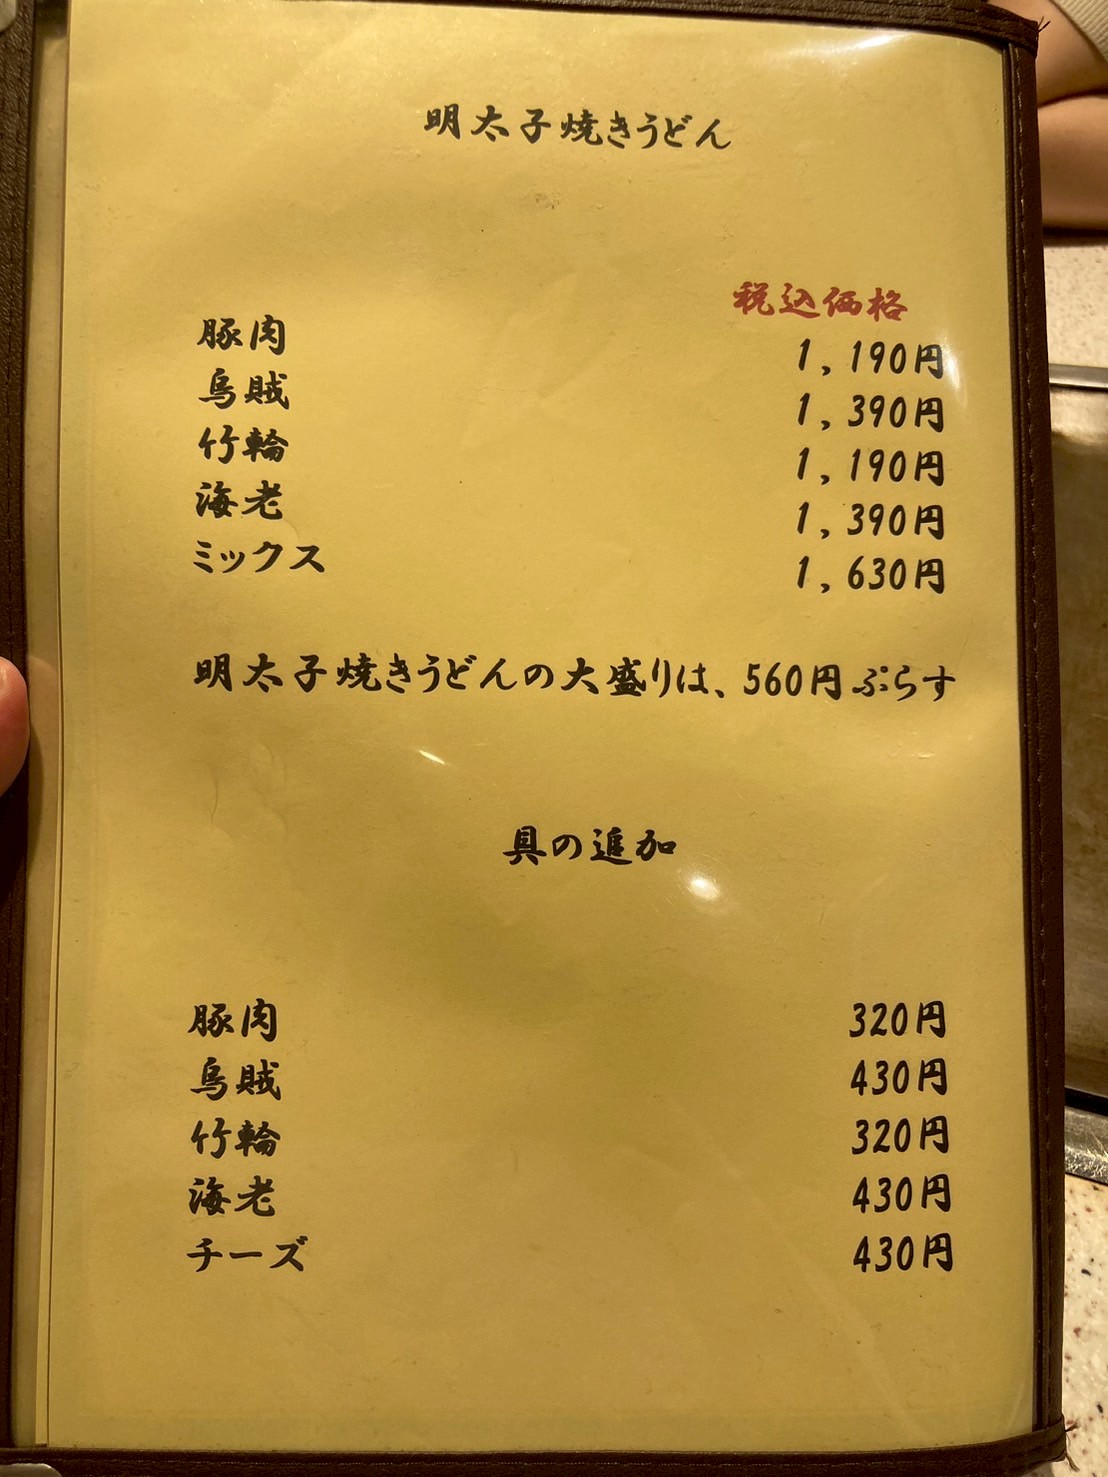 明太子焼きうどん
税込価格
豚肉 1,190円
烏賊 1,390円
竹輪 1,190円
海老 1,390円
ミックス 1,630円
明太子焼きうどんの大盛りは、560円ぷらす
具の追加
豚肉 320円
烏賊 430円
竹輪 320円
海老 430円
チーズ 430円